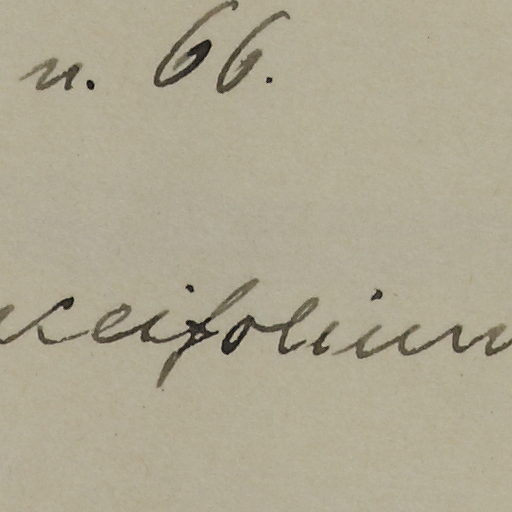 n. 66.
usceifolium